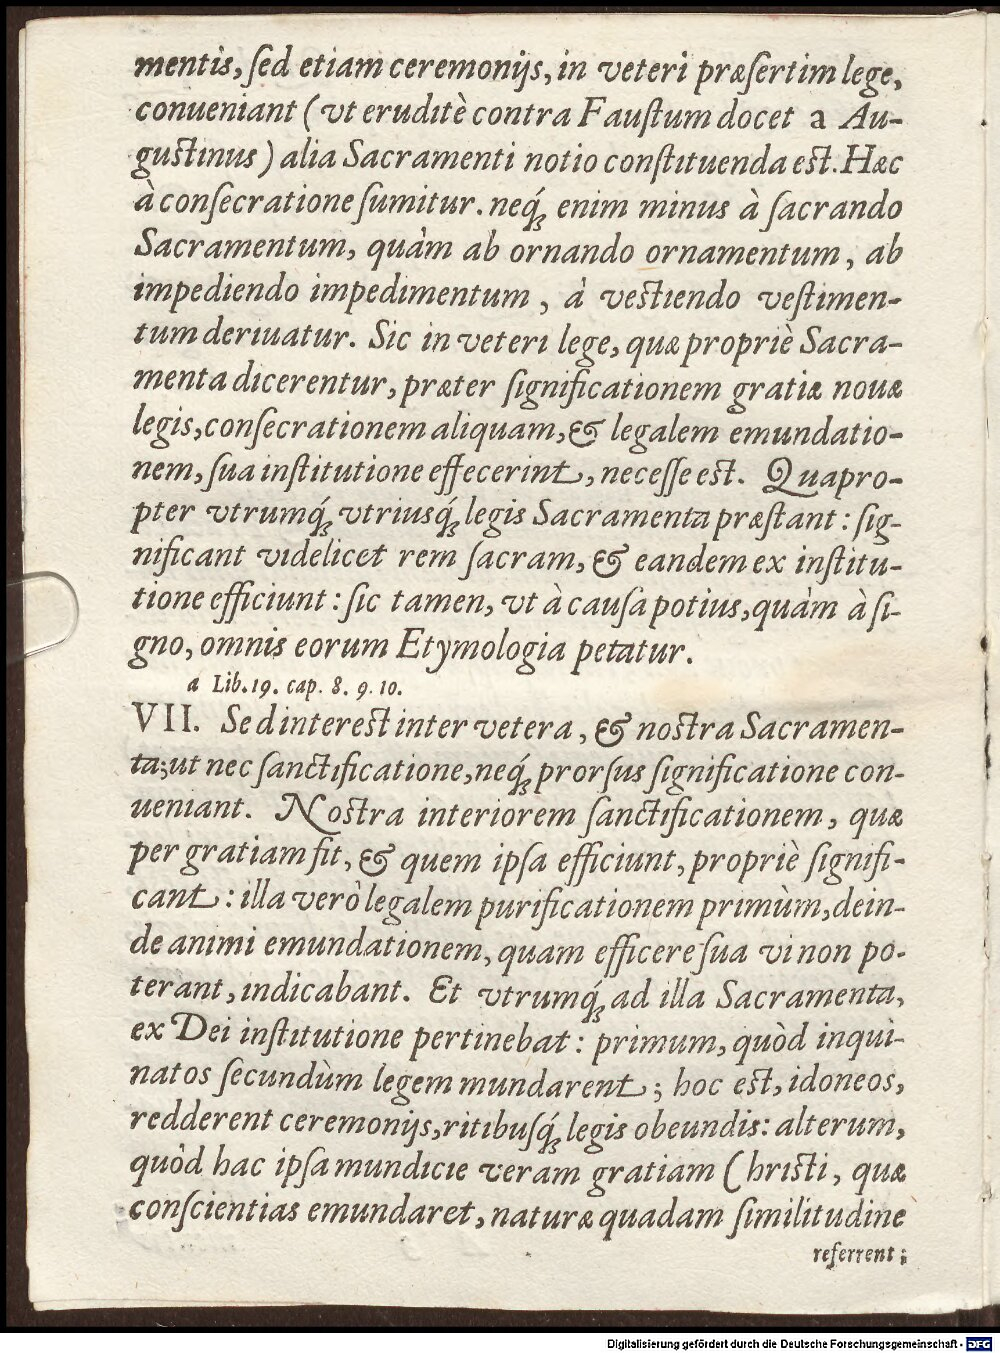 mentis, ſed etiam ceremonijs, in veteri præſertim lege,
conueniant (vt eruditè contra Fauſtum docet a Au-
guſtinus) alia Sacramenti notio conſtituenda eſt. Hæc
à conſecratione ſumitur. neq́ꝫ enim minus à ſacrando
Sacramentum, quàm ab ornando ornamentum, ab
impediendo impedimentum, à veſtiendo veſtimen-
tum deriuatur. Sic in veteri lege, quæ propriè Sacra-
menta dicerentur, præter ſignificationem gratiæ nouæ
legis, conſecrationem aliquam, & legalem emundatio-
nem, ſua inſtitutione effecerint, neceſſe eſt. Quapro-
pter vtrumq́ꝫ vtriusq́ꝫ legis Sacramenta præſtant: ſig-
nificant videlicet rem ſacram, & eandem ex inſtitu-
tione efficiunt: ſic tamen, vt à cauſa potius, quàm à ſi-
gno, omnis eorum Etymologia petatur.
a Lib. 19. cap. 8. 9. 10.
VII. Sed intereſt inter vetera, & noſtra Sacramen-
ta; ut nec ſanctificatione, neq́ꝫ prorſus ſignificatione con-
ueniant. Noſtra interiorem ſanctificationem, quæ
per gratiam fit, & quem ipſa efficiunt, propriè ſignifi-
cant: illa verò legalem purificationem primùm, dein-
de animi emundationem, quam efficere ſua vi non po-
terant, indicabant. Et vtrumq́ꝫ ad illa Sacramenta,
ex Dei inſtitutione pertinebat: primum, quòd inqui-
natos ſecundùm legem mundarent; hoc eſt, idoneos,
redderent ceremonijs, ritibuſq́ꝫ legis obeundis: alterum,
quòd hac ipſa mundicie veram gratiam Chriſti, quæ
conſcientias emundaret, naturæ quadam ſimilitudine
referrent;
Digitalisierung gefördert durch die Deutsche Forschungsgemeinschaft - DFG